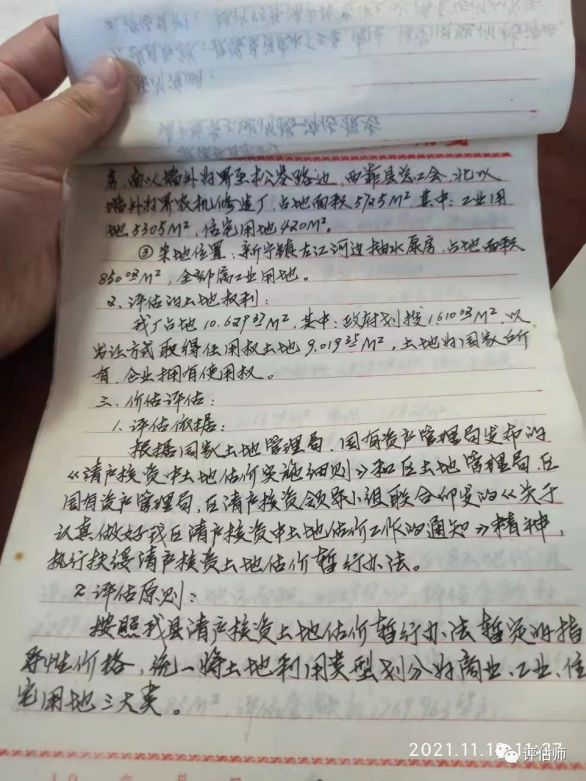 房,南以墙外为界至于公路边,西靠县总工会,北以
墙外为界农机修造厂,占地面积5725M²,其中:工业用
地5305M²,住宅用地420M²。
③宗地位置:新宁镇左江河边抽水泵房,占地面积
850M²,全部属工业用地。
2、评估的土地权利:
我厂占地10.629M²,其中:政府划拨1.610M²,以
出让方式取得使用权土地9.019M²,土地为国家所
有,企业拥有使用权。
三、价估评估:
1.评估依据:
根据国家土地管理局、国有资产管理局发布的
《清产核资中土地估价实施细则》和区土地管理局、区
国有资产管理局、区清产核资领导小组联合印发的《关于
认真做好我区清产核资中土地估价工作的通知》精神,
执行扶绥清产核资土地估价暂行办法。
2.评估原则:
按照我县清产核资土地估价暂行办法暂定的指
导性价格,统一将土地利用类型划分为商业、工业、住
宅用地三大类。
评估师
2021.11.10 11:27